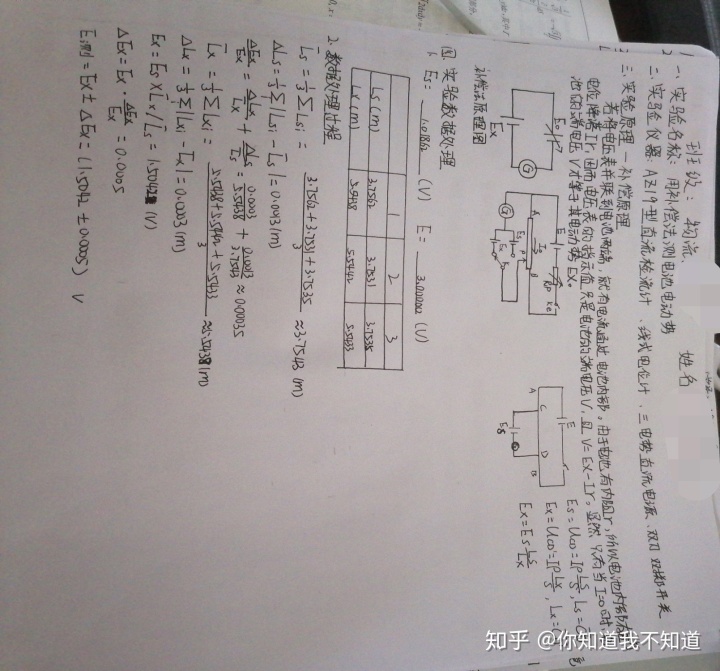 班级：物流
姓名
一、实验名称：用补偿法测电池电动势
二、实验仪器：AZ19型直流检流计、线式电位计、三电势直流电源、双刀双掷开关
三、实验原理—补偿原理
若将电压表并联到电池两端，就有电流通过电池内部，由于电池有内阻r，所以电池内部存
电位降落Ir，因而电压表的指示值只是电池的端电压V，且V=Ex-Ir，显然，只有当I=0时，
池的端电压V才等于其电动势Ex。
Es=Ucd=Ip Ls/S, Ls=
Ex=Ucd=Ip Lx/S, Lx=
Ex=Es Ls/Lx
补偿法原理图
四、实验数据处理
1、Es= 1.01862 (V) E= 3.00000 (V)
1 2 3
Ls(m) 3.7562 3.7531 3.7535
Lx(m) 5.5428 5.5442 5.5433
2、数据处理过程
L̄s=1/3 ΣLsi=(3.7562+3.7531+3.7535)/3≈3.7543 (m)
ΔLs=1/3 Σ|Lsi-L̄s|=0.0013 (m)
ΔEx/Ex=ΔLx/L̄x+ΔLs/L̄s=0.0003/5.5438+0.0013/3.7543≈0.00035
L̄x=1/3 ΣLxi=(5.5428+5.5442+5.5433)/3≈5.5438(m)
ΔLx=1/3 Σ|Lxi-L̄x|=0.0003 (m)
Ex=Es×L̄x/L̄s=1.5042 (V)
ΔEx=Ex·ΔEx/Ex=0.0005
E测=Ex±ΔEx=(1.5042±0.0005) V
知乎 @你知道我不知道